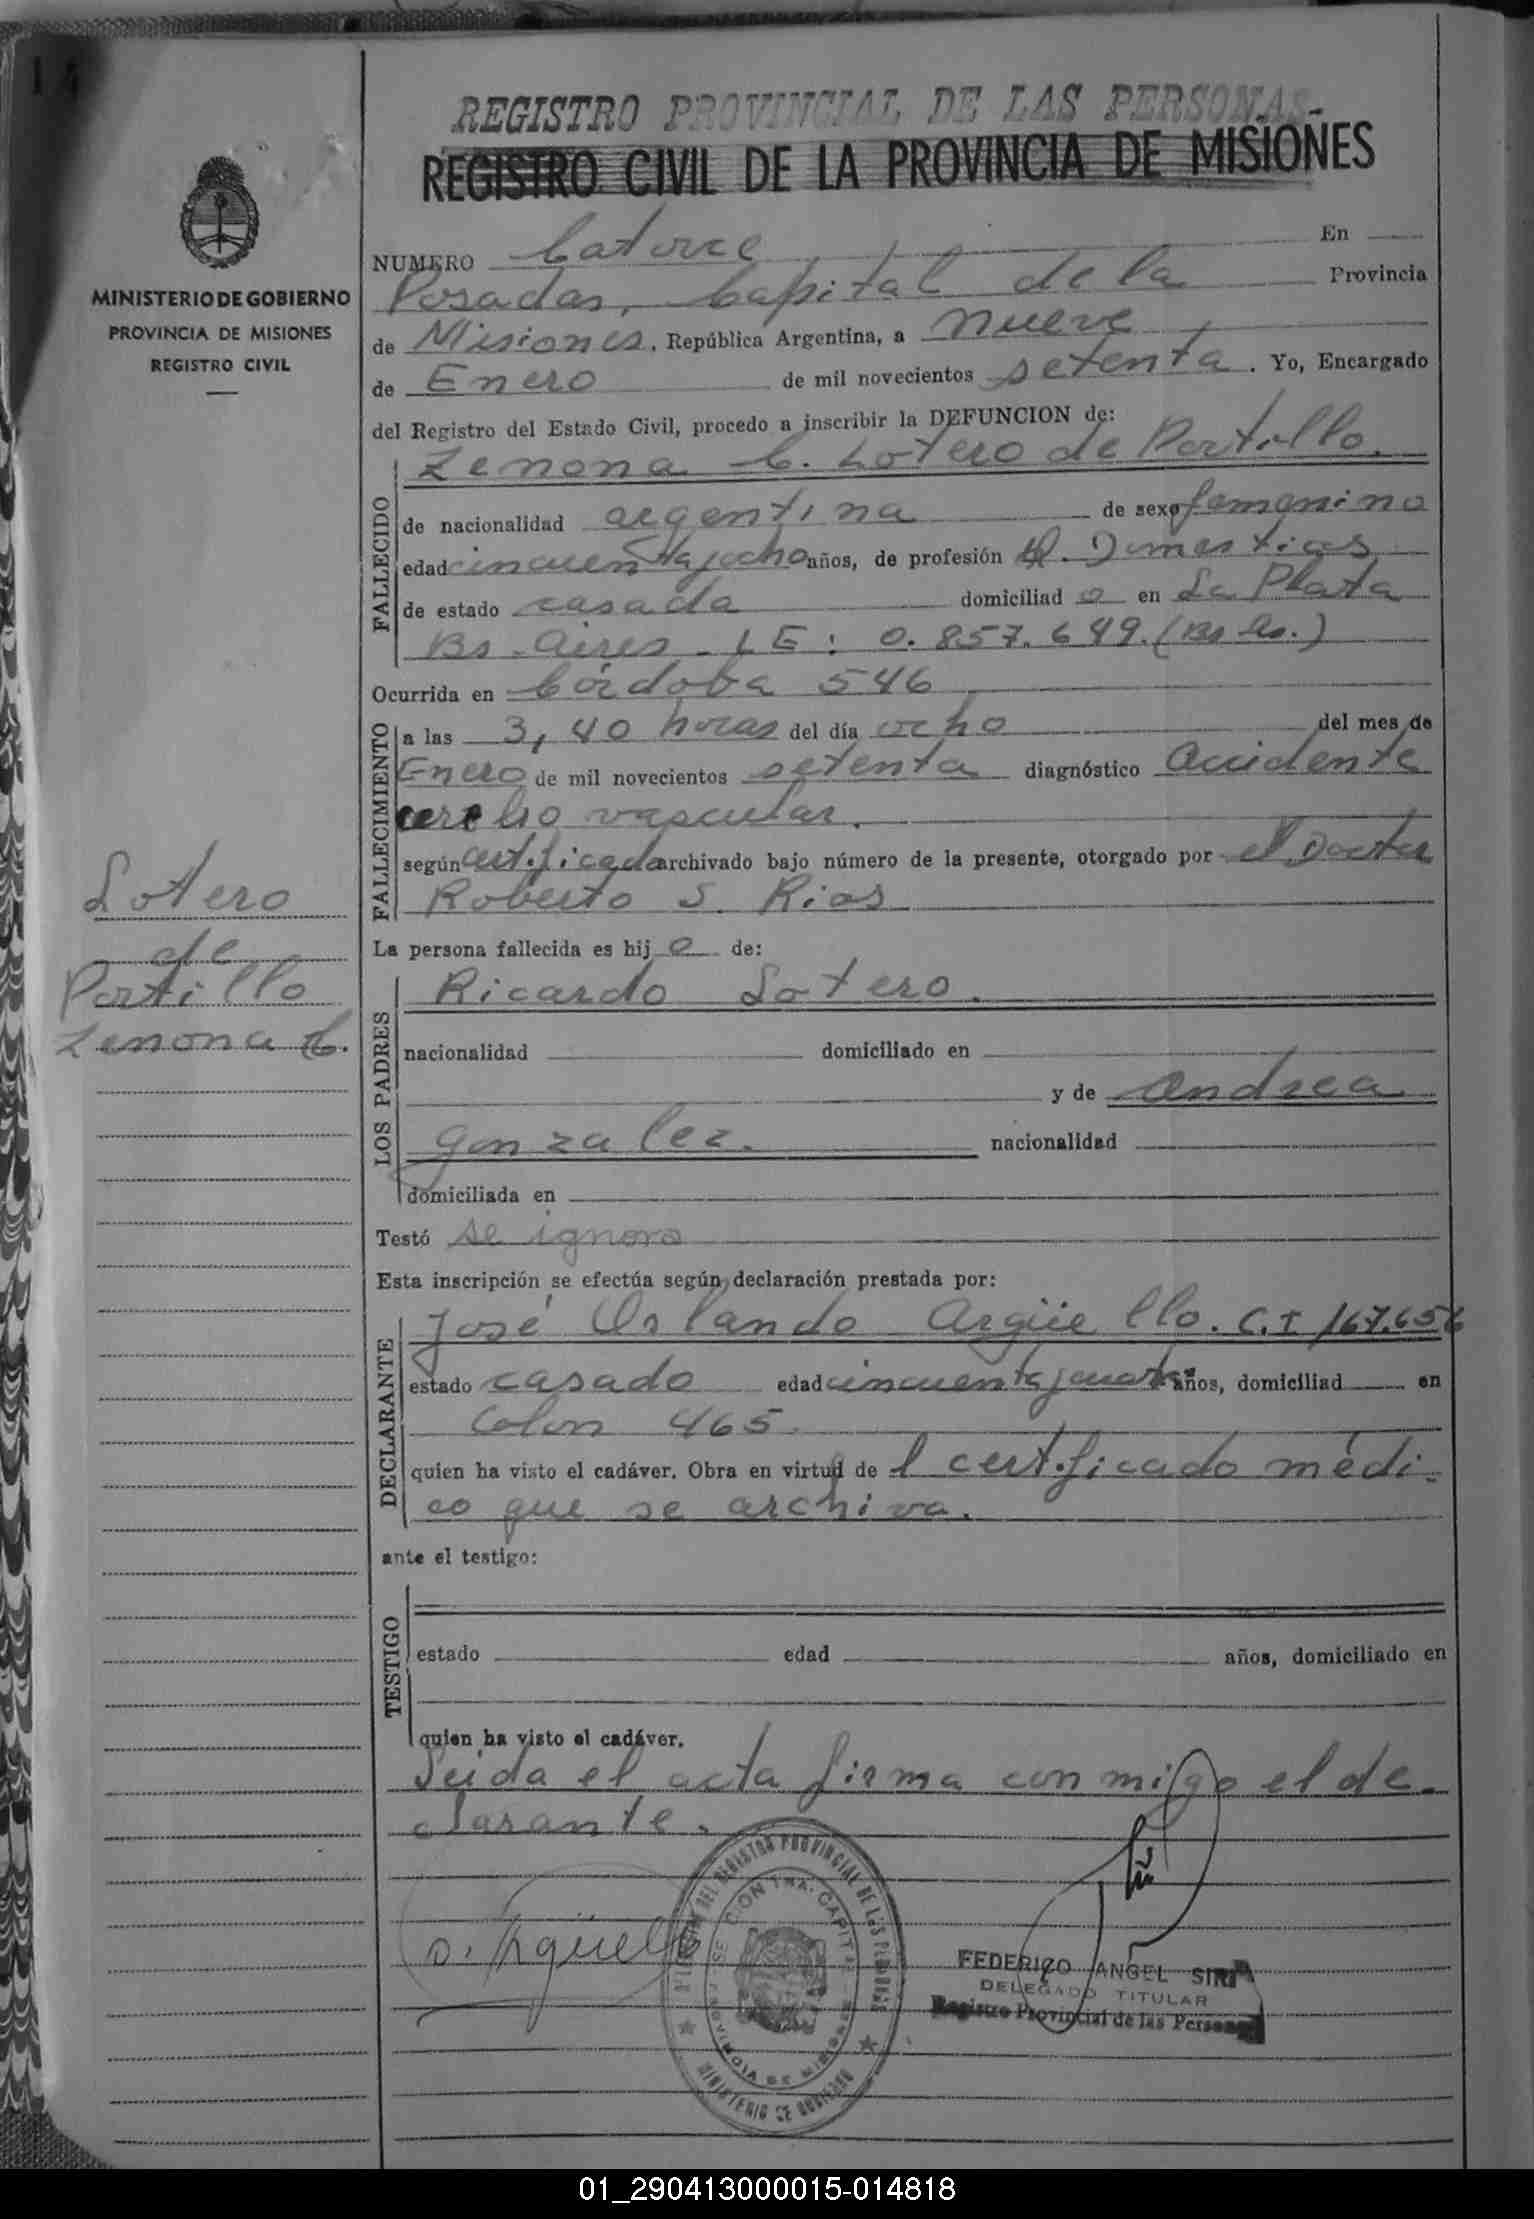 14
REGISTRO PROVINCIAL DE LAS PERSONAS-
REGISTRO CIVIL DE LA PROVINCIA DE MISIONES
MINISTERIO DE GOBIERNO
PROVINCIA DE MISIONES
REGISTRO CIVIL
NUMERO Catorce En
Posadas, Capital de la Provincia
de Misiones, República Argentina, a nueve
de Enero de mil novecientos setenta. Yo, Encargado
del Registro del Estado Civil, procedo a inscribir la DEFUNCION de:
Zenona C. Lotero de Portillo.
FALLECIDO
de nacionalidad argentina de sexo femenino
edad cincuentayocho años, de profesión Q. Domesticos
de estado casada domiciliad a en La Plata
Bs. Aires. LE: 0.857.649. (Bs As.)
Ocurrida en Córdoba 546
FALLECIMIENTO
a las 3,40 horas del día ocho del mes de
Enero de mil novecientos setenta diagnóstico accidente
cerebro vascular.
según certificado archivado bajo número de la presente, otorgado por el Doctor
Roberto S. Rios
La persona fallecida es hij a de:
Lotero
de
Portillo
Zenona C.
LOS PADRES
Ricardo Lotero.
nacionalidad domiciliado en
y de Andrea
Gonzalez. nacionalidad
domiciliada en
Testó se ignora
Esta inscripción se efectúa según declaración prestada por:
DECLARANTE
José Orlando Argüello. C.I 167.656
estado casado edad cincuentaycuatro años, domiciliad en
Colon 465.
quien ha visto el cadáver. Obra en virtud de l certificado médi-
co que se archiva.
ante el testigo:
TESTIGO
estado edad años, domiciliado en
quien ha visto el cadáver.
Leida el acta firma conmigo el de-
clarante.
O. Argüello
DIRECCION DEL REGISTRO PROVINCIAL DE LAS PERSONAS
SECCION 1RA. CAPITAL
PROVINCIA DE MISIONES
MINISTERIO DE GOBIERNO
FEDERICO ANGEL SIRI
DELEGADO TITULAR
Registro Provincial de las Personas
01_290413000015-014818